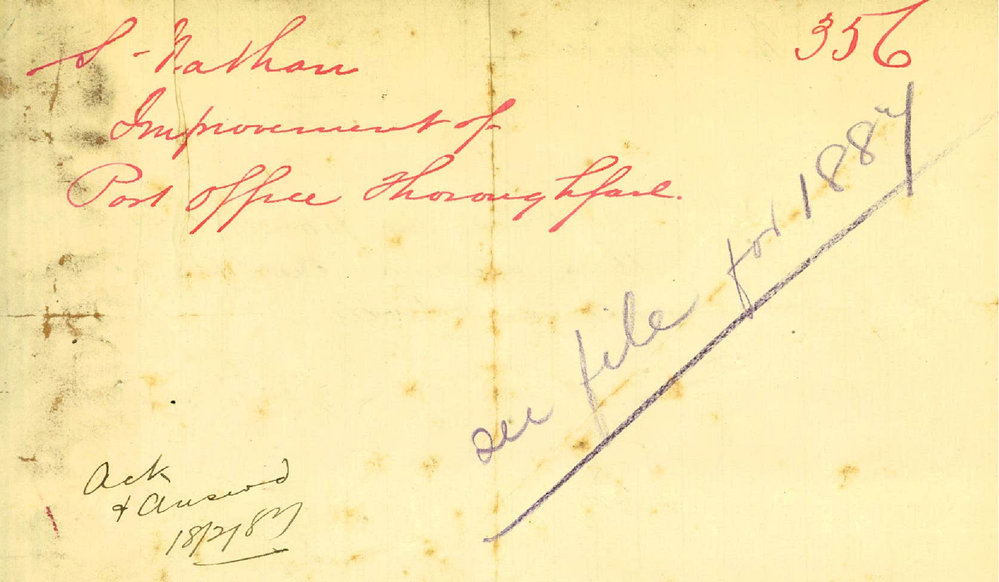 356
S - Nathan
Improvement of
Post Office Thoroughfare.
see file for 1887
Ack
& Answd
18/2/87